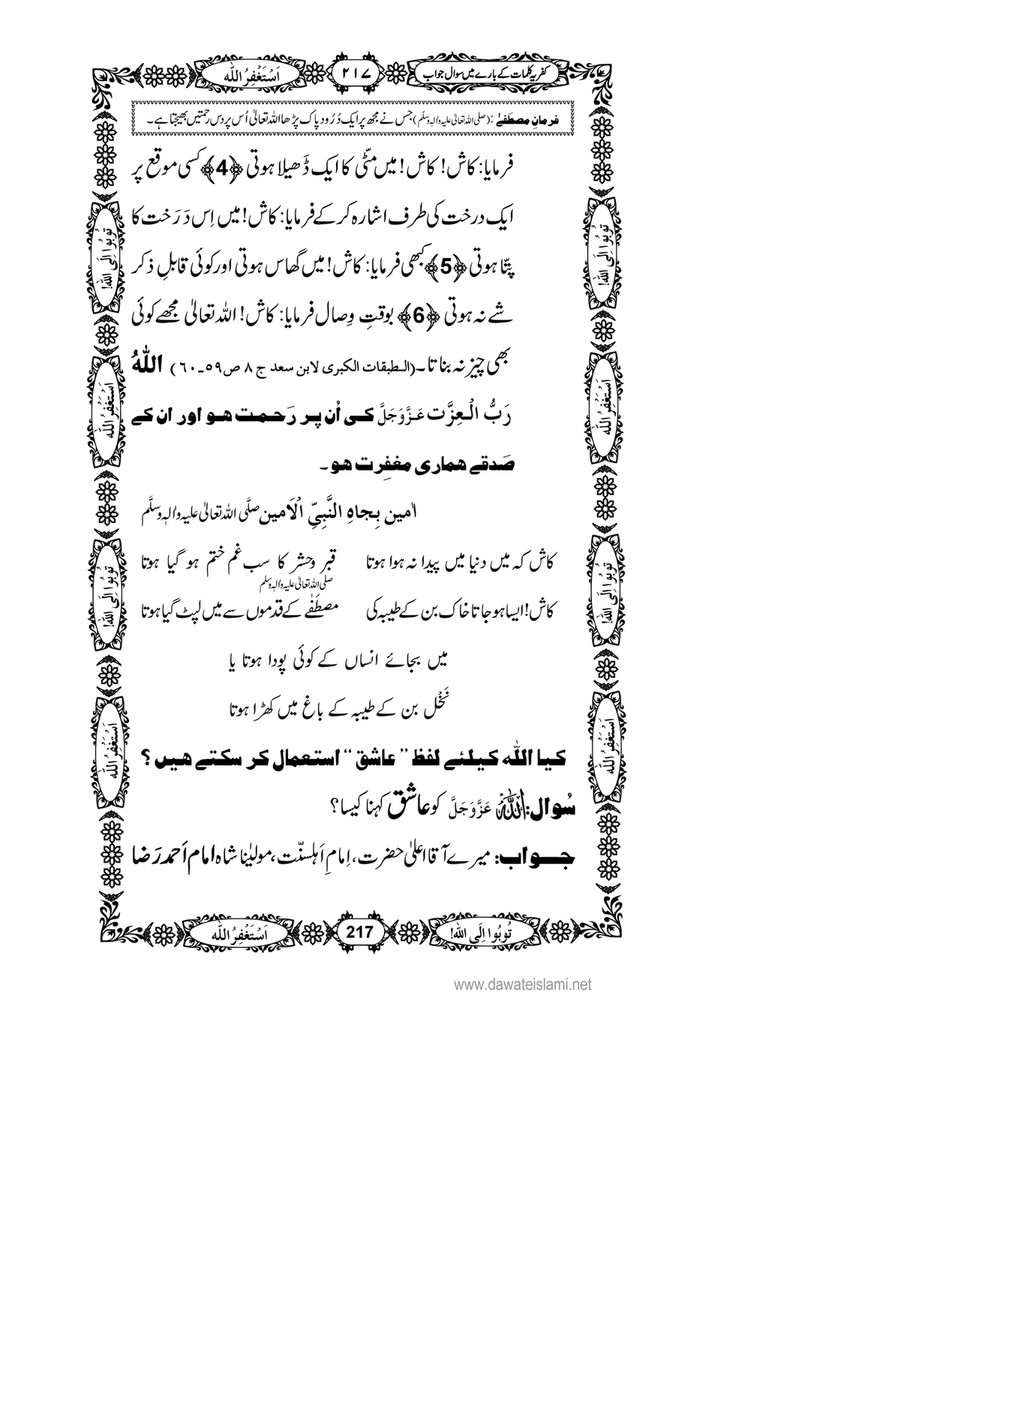 کفریہ کلمات کے بارے میں سوال جواب
۲۱۷
اَسْتَغْفِرُ اللّٰه
فرمانِ مصطَفٰے : (صلی اللہ تعالیٰ علیہ والہٖ وسلّم) جس نے مجھ پر ایک دُرُودِ پاک پڑھا اللہ تعالیٰ اُس پر دس رحمتیں بھیجتا ہے۔
فرمایا: کاش! کاش! میں مِٹّی کا ایک ڈَھیلا ہوتی ﴿4﴾ کسی موقع پر
ایک درخت کی طرف اشارہ کر کے فرمایا: کاش! میں اِس دَرَخت کا
پتّا ہوتی ﴿5﴾ کبھی فرمایا: کاش! میں گھاس ہوتی اور کوئی قابلِ ذکر
شے نہ ہوتی ﴿6﴾ بوقتِ وِصال فرمایا: کاش! اللہ تعالیٰ مجھے کوئی
بھی چیز نہ بناتا۔ (الطبقات الکبری لابن سعد ج ۸ ص۵۹۔۶۰) اللّٰہُ
رَبُّ الْعِزَّت عَزَّوَجَلَّ کی اُن پر رَحمت ہو اور ان کے
صَدقے ہماری مغفِرت ہو۔
اٰمین بِجاہِ النَّبِیِّ الْاَمین صلَّی اللہ تعالیٰ علیہ والہٖ وسلَّم
کاش کہ میں دنیا میں پیدا نہ ہوا ہوتا قبر و حشر کا سب غم ختم ہو گیا ہوتا
صلی اللہ تعالیٰ علیہ والہٖ وسلم
کاش! ایسا ہو جاتا خاک بن کے طیبہ کی مصطَفٰے کے قدموں سے میں لپٹ گیا ہوتا
میں بجائے انساں کے کوئی پودا ہوتا یا
نَخْل بن کے طیبہ کے باغ میں کھڑا ہوتا
کیا اللّٰہ کیلئے لفظ ’’عاشق‘‘ استعمال کر سکتے ہیں؟
سُوال: اللّٰہ عَزَّوَجَلَّ کو عاشق کہنا کیسا؟
جواب: میرے آقا اعلیٰ حضرت، اِمامِ اَہلسنّت، مولیٰنا شاہ امام اَحمد رَضا
تُوبُوا اِلَی اللّٰه!
اَسْتَغْفِرُ اللّٰه
تُوبُوا اِلَی اللّٰه!
اَسْتَغْفِرُ اللّٰه
تُوبُوا اِلَی اللّٰه!
اَسْتَغْفِرُ اللّٰه
تُوبُوا اِلَی اللّٰه!
اَسْتَغْفِرُ اللّٰه
تُوبُوا اِلَی اللّٰه!
217
اَسْتَغْفِرُ اللّٰه
www.dawateislami.net